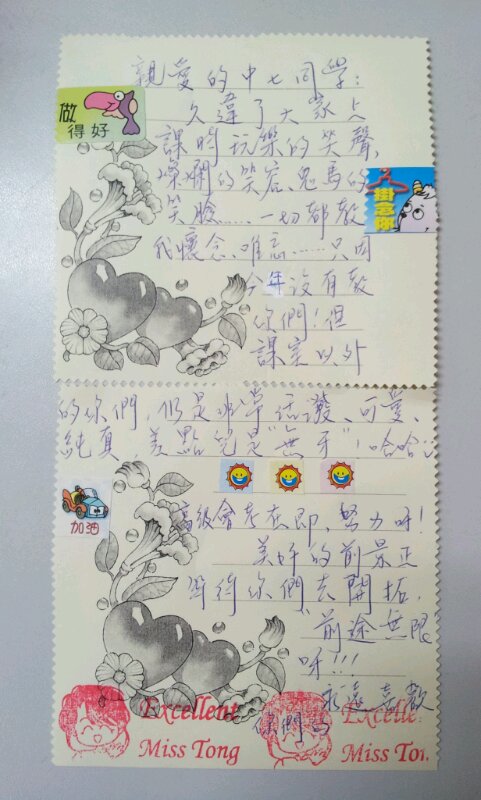 親愛的中七同學：
做得好
久違了大家上
課時玩樂的笑聲，
燦爛的笑容、鬼馬的
掛念你
笑臉……一切都教
我懷念、難忘……只因
今年沒有教
你們！但
課室以外
的你們，仍是非常活潑、可愛、
純真，差點兒是"無牙"！哈哈！
加油
高級會考在即，努力呀！
美好的前景正
等待你們去開拓，
"前途無限"
呀!!!
永遠喜歡
你們的
Excellent Excelle
Miss Tong Miss Ton